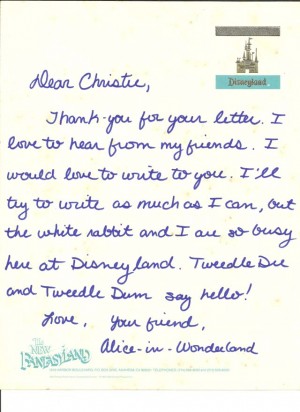 Disneyland
Dear Christie,
Thank-you for your letter. I
love to hear from my friends. I
would love to write to you. I'll
try to write as much as I can, but
the white rabbit and I are so busy
here at Disneyland. Tweedle Dee
and Tweedle Dum say hello!
Love, your friend,
Alice-in-Wonderland
The
NEW
FANTASYLAND